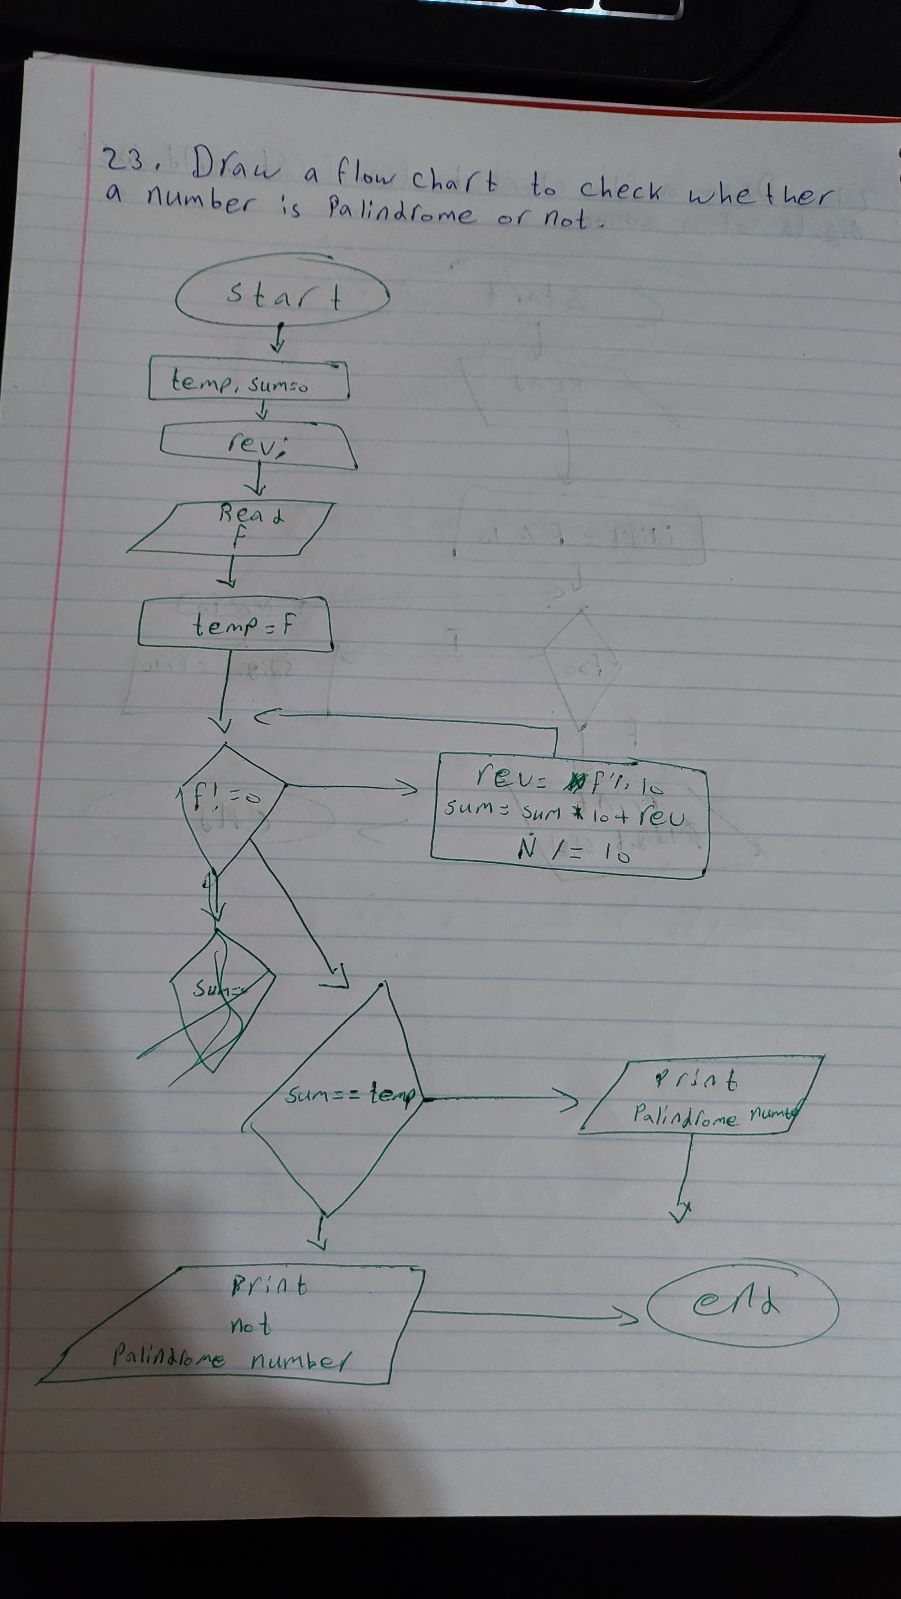 23. Draw a flow chart to check whether
a number is Palindrome or not.
start
temp, sum=0
rev;
Read
F
temp = F
f! = 0
rev = f % 10
sum = sum * 10 + rev
N / = 10
sum=
sum == temp
Print
Palindrome numbe
Print
not
Palindrome number
end